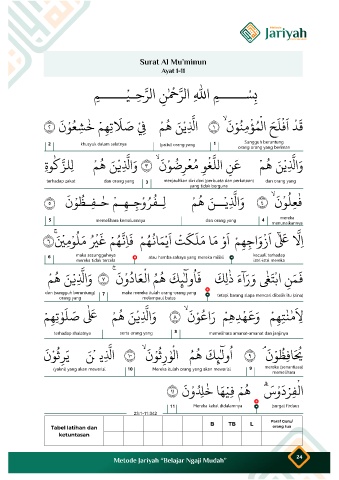 Jariyah
Surat Al Mu'minun
Ayat 1-11
بِسْمِ اللهِ الرَّحْمٰنِ الرَّحِيْمِ
قَدْ اَفْلَحَ الْمُؤْمِنُوْنَ ۙ ١ الَّذِيْنَ هُمْ فِيْ صَلَاتِهِمْ خٰشِعُوْنَ ٢
Sungguh beruntung orang-orang yang beriman 1 (yaitu) orang yang khusyuk dalam salatnya 2
وَالَّذِيْنَ هُمْ عَنِ اللَّغْوِ مُعْرِضُوْنَ ۙ ٣ وَالَّذِيْنَ هُمْ لِلزَّكٰوةِ
dan orang yang menjauhkan diri dari (perbuatan dan perkataan) yang tidak berguna 3 dan orang yang terhadap zakat
فٰعِلُوْنَ ۙ ٤ وَالَّذِيْنَ هُمْ لِفُرُوْجِهِمْ حٰفِظُوْنَ ٥
mereka menunaikannya 4 dan orang yang memelihara kemaluannya 5
اِلَّا عَلٰٓى اَزْوَاجِهِمْ اَوْ مَا مَلَكَتْ اَيْمَانُهُمْ فَاِنَّهُمْ غَيْرُ مَلُوْمِيْنَ ۚ ٦
kecuali terhadap istri-istri mereka atau hamba sahaya yang mereka miliki maka sesungguhnya mereka tidak tercela 6
فَمَنِ ابْتَغٰى وَرَآءَ ذٰلِكَ فَاُولٰٓىِٕكَ هُمُ الْعَادُوْنَ ۚ ٧ وَالَّذِيْنَ هُمْ
tetapi barang siapa mencari dibalik itu (zina) maka mereka itulah orang-orang yang melampaui batas 7 dan (sungguh beruntung) orang yang
لِاَمٰنٰتِهِمْ وَعَهْدِهِمْ رَاعُوْنَ ۙ ٨ وَالَّذِيْنَ هُمْ عَلٰى صَلَوٰتِهِمْ
memelihara amanat-amanat dan janjinya 8 serta orang yang terhadap shalatnya
يُحَافِظُوْنَ ۘ ٩ اُولٰٓىِٕكَ هُمُ الْوٰرِثُوْنَ ۙ ١٠ الَّذِيْنَ يَرِثُوْنَ
mereka (senantiasa) memelihara 9 Mereka itulah orang yang akan mewarisi 10 (yakni) yang akan mewarisi
الْفِرْدَوْسَ ۗ هُمْ فِيْهَا خٰلِدُوْنَ ١١
(surga) Firdaus Mereka kekal didalamnya 11
Tabel latihan dan ketuntasan B TB L Paraf Guru/ orang tua
Metode Jariyah "Belajar Ngaji Mudah" 24